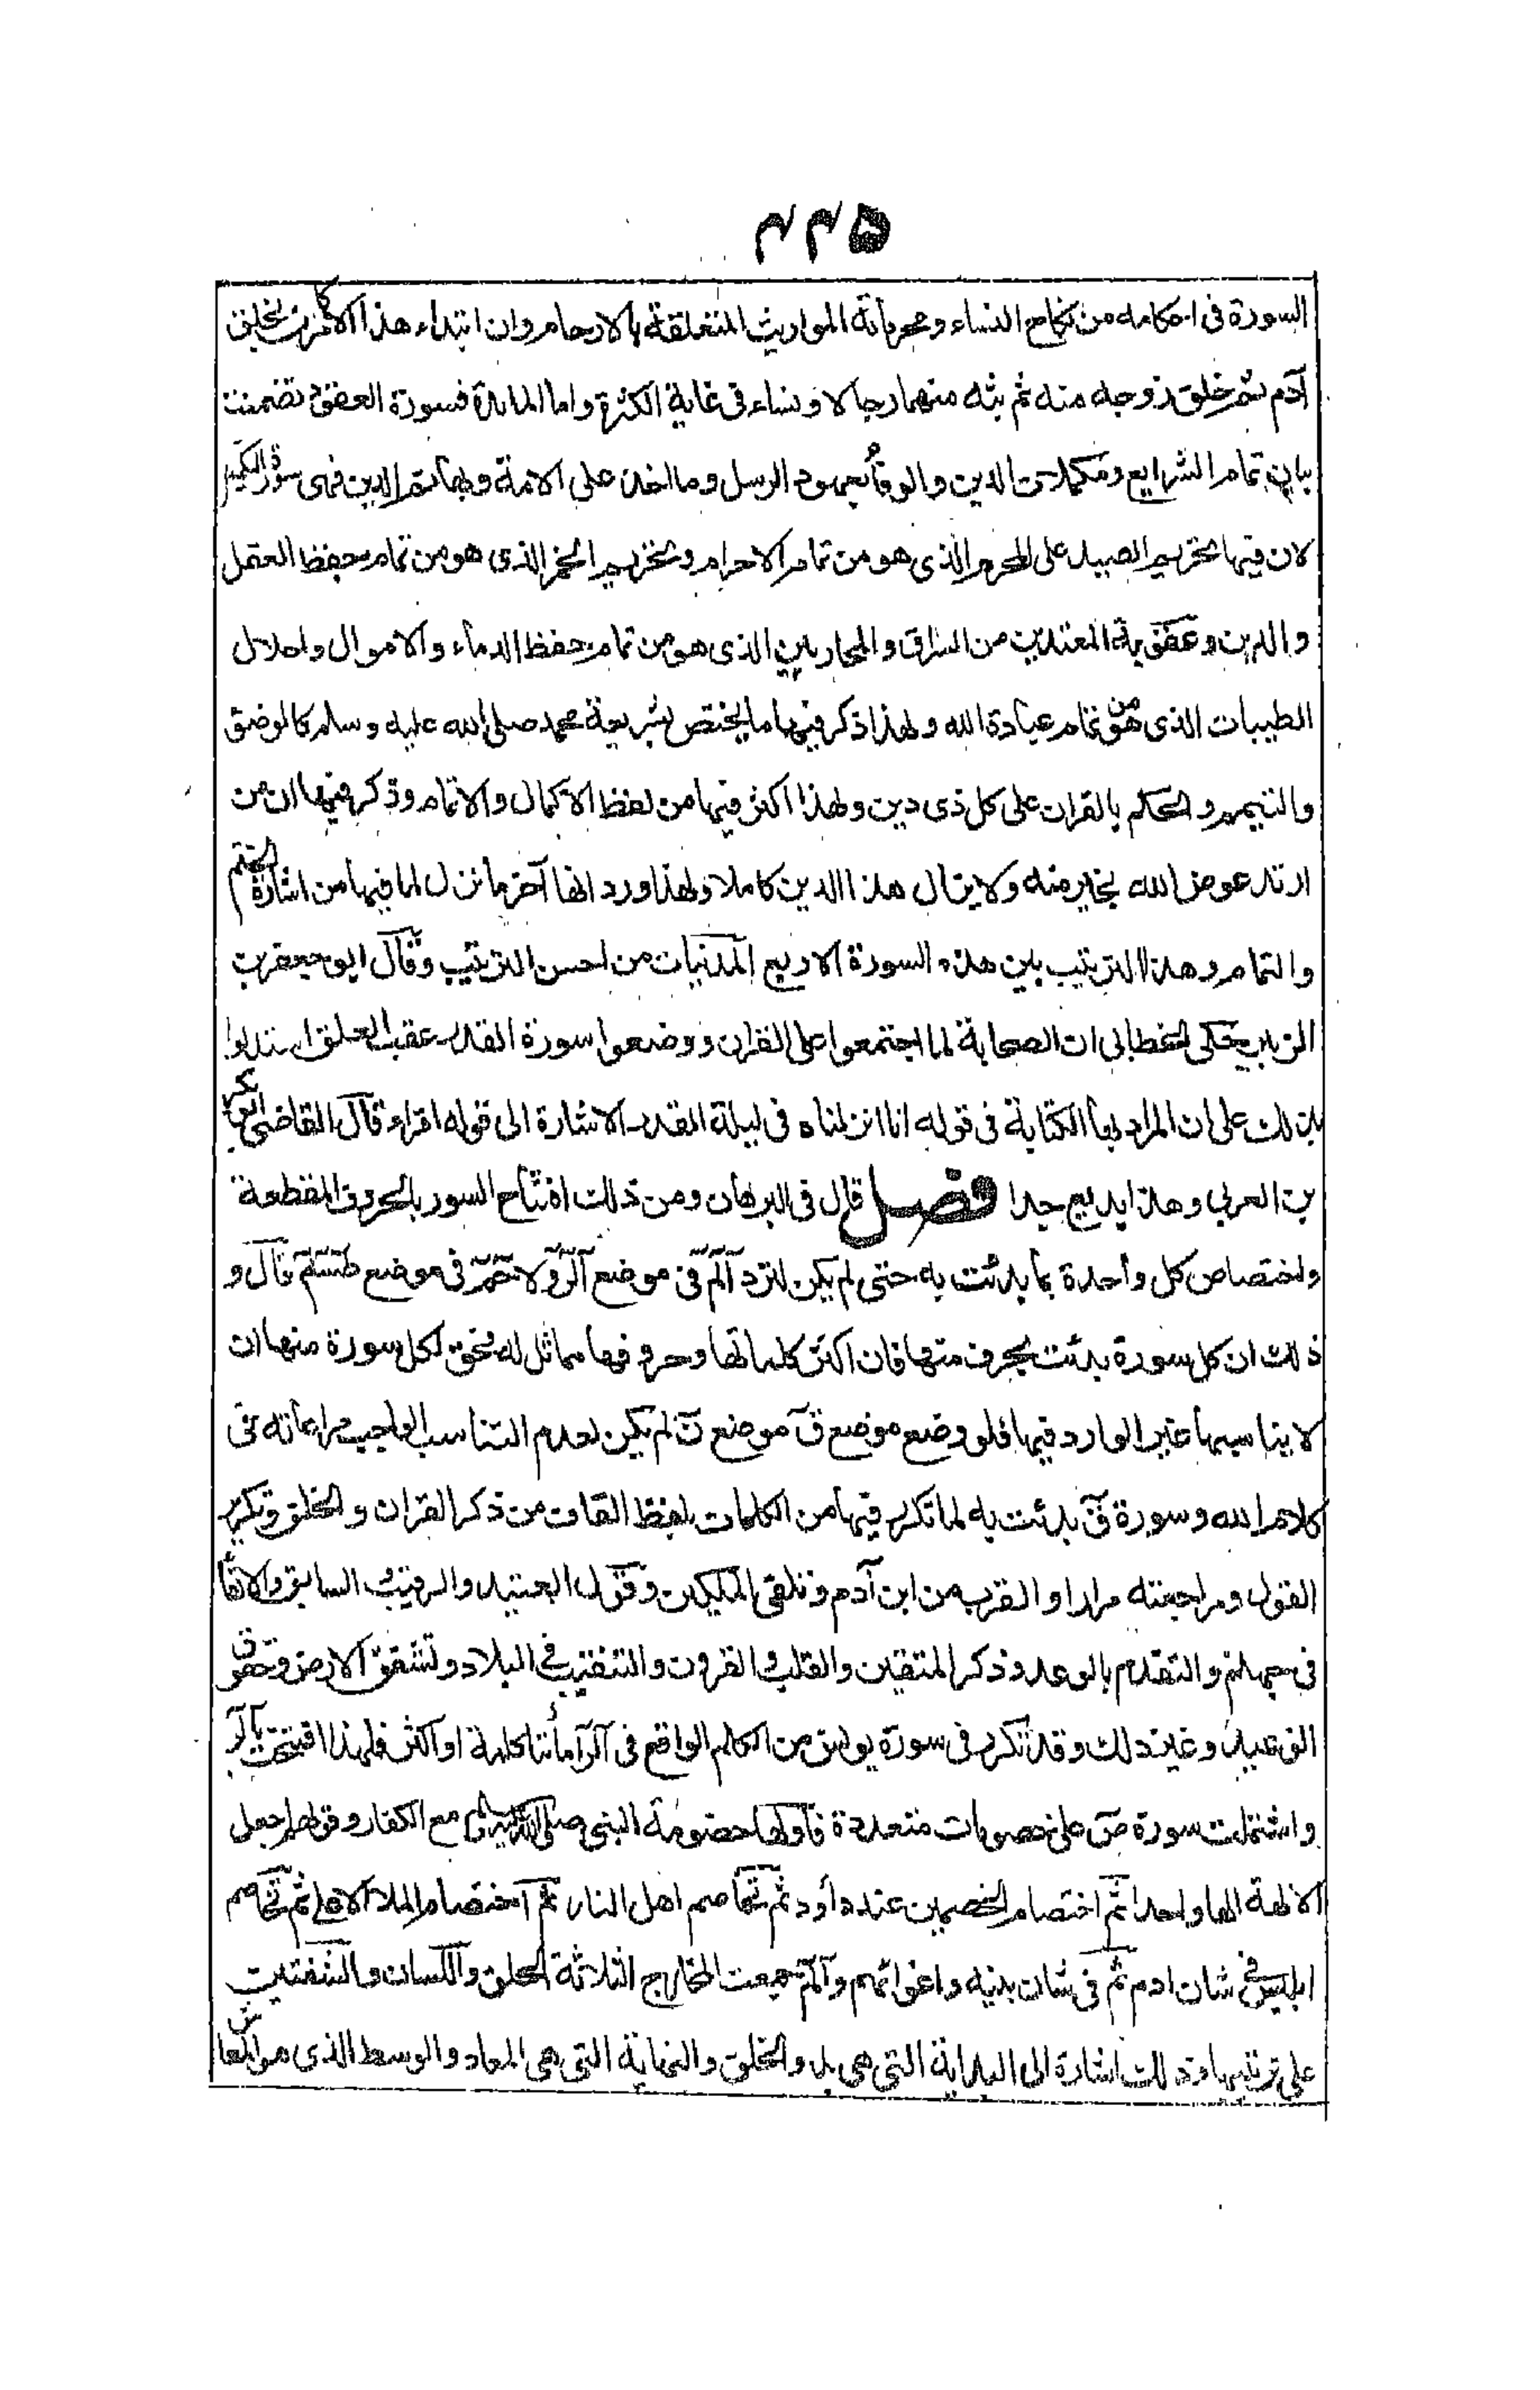 ۴۴۵
السورة فى احكامه من نكاح النساء ومحرماته المواريث المتعلقة بالارحام وان ابتداء هذا الامر كان بخلق
آدم ثم خلق زوجه منه ثم بثه منهما رجالا ونساء فى غاية الكثرة واما المائدة فسورة العقود تضمنت
بيان تمام الشرايع ومكملات الدين والوفاء بعهود الرسل وما اخذ على الامة وبها تم الدين فهى سورة التكميل
لان فيها تحريم الصيد على المحرم الذى هو من تمام الاحرام وتحريم الخمر الذى هو من تمام حفظ العقل
والدين وعقوبة المعتدين من السراق والمحاربين الذى هو من تمام حفظ الدماء والاموال واحلال
الطيبات الذى هو من تمام عبادة الله ولهذا ذكر فيها ما يختص بشريعة محمد صلى الله عليه وسلم كالوضوء
والتيمم والحكم بالقران على كل ذى دين ولهذا اكثر فيها من لفظ الاكمال والاتمام وذكر فيها ان من
ارتد عوض الله بخير منه ولا يزال هذا الدين كاملا ولهذا ورد انها آخر ما نزل لما فيها من اشارة الختم
والتمام وهذا الترتيب بين هذه السورة الاربع المدنيات من احسن الترتيب وقال ابو جعفر بن
الزبير حكى الخطابى ان الصحابة لما اجتمعوا على القران ووضعوا سورة القدر عقب العلق استدلوا
بذلك على ان المراد بها الكتابة فى قوله انا انزلناه فى ليلة القدر الاشارة الى قوله اقراء قال القاضى ابو بكر
بن العربى وهذا بديع جدا فصل قال فى البرهان ومن ذلك افتتاح السور بالحروف المقطعة
واختصاص كل واحدة بما بدئت به حتى لم يكن لترد آلم فى موضع آلر ولا حم فى موضع طسم قال و
ذلك ان كل سورة بدئت بحرف منها فان اكثر كلماتها وحروفها مماثل له فحق لكل سورة منها ان
لا يناسبها غير الوارد فيها فلو وضع موضع ق موضع ن لم يكن لعدم التناسب الواجب مراعاته فى
كلام الله وسورة ق بدئت به لما تكرر فيها من الكلمات بلفظ القاف من ذكر القران والخلق وتكرير
القول ومراجعته مرارا والقرب من ابن آدم وتلقى الملكين وقول العتيد والرقيب السابق والالقاء
فى جهنم والتقدم بالوعد وذكر المتقين والقلب والقرون والتنقيب فى البلاد وتشقق الارض وحقوق
الوعيد وغير ذلك وقد تكرر فى سورة يونس من الكلم الواقع فى آلر مأتا كلمة او اكثر فلهذا افتتحت بآلر
واشتملت سورة ص على خصومات متعددة فاولها خصومة النبى صلى الله عليه وسلم مع الكفار وقولهم اجعل
الالهة الها واحدا ثم اختصام الخصمين عند داؤد ثم تخاصم اهل النار ثم اختصام الملاء الاعلى ثم تخاصم
ابليس فى شان ادم ثم فى شان بنيه واغوائهم وآلم جمعت المخارج الثلاثة الحلق واللسان والشفتين
على ترتيبها وذلك اشارة الى البداية التى هى بدء الخلق والنهاية التى هى المعاد والوسط الذى هو المعاش